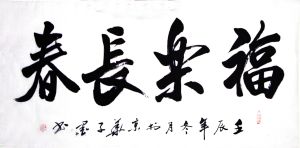 福樂長春
壬辰年冬月於京華子墨書